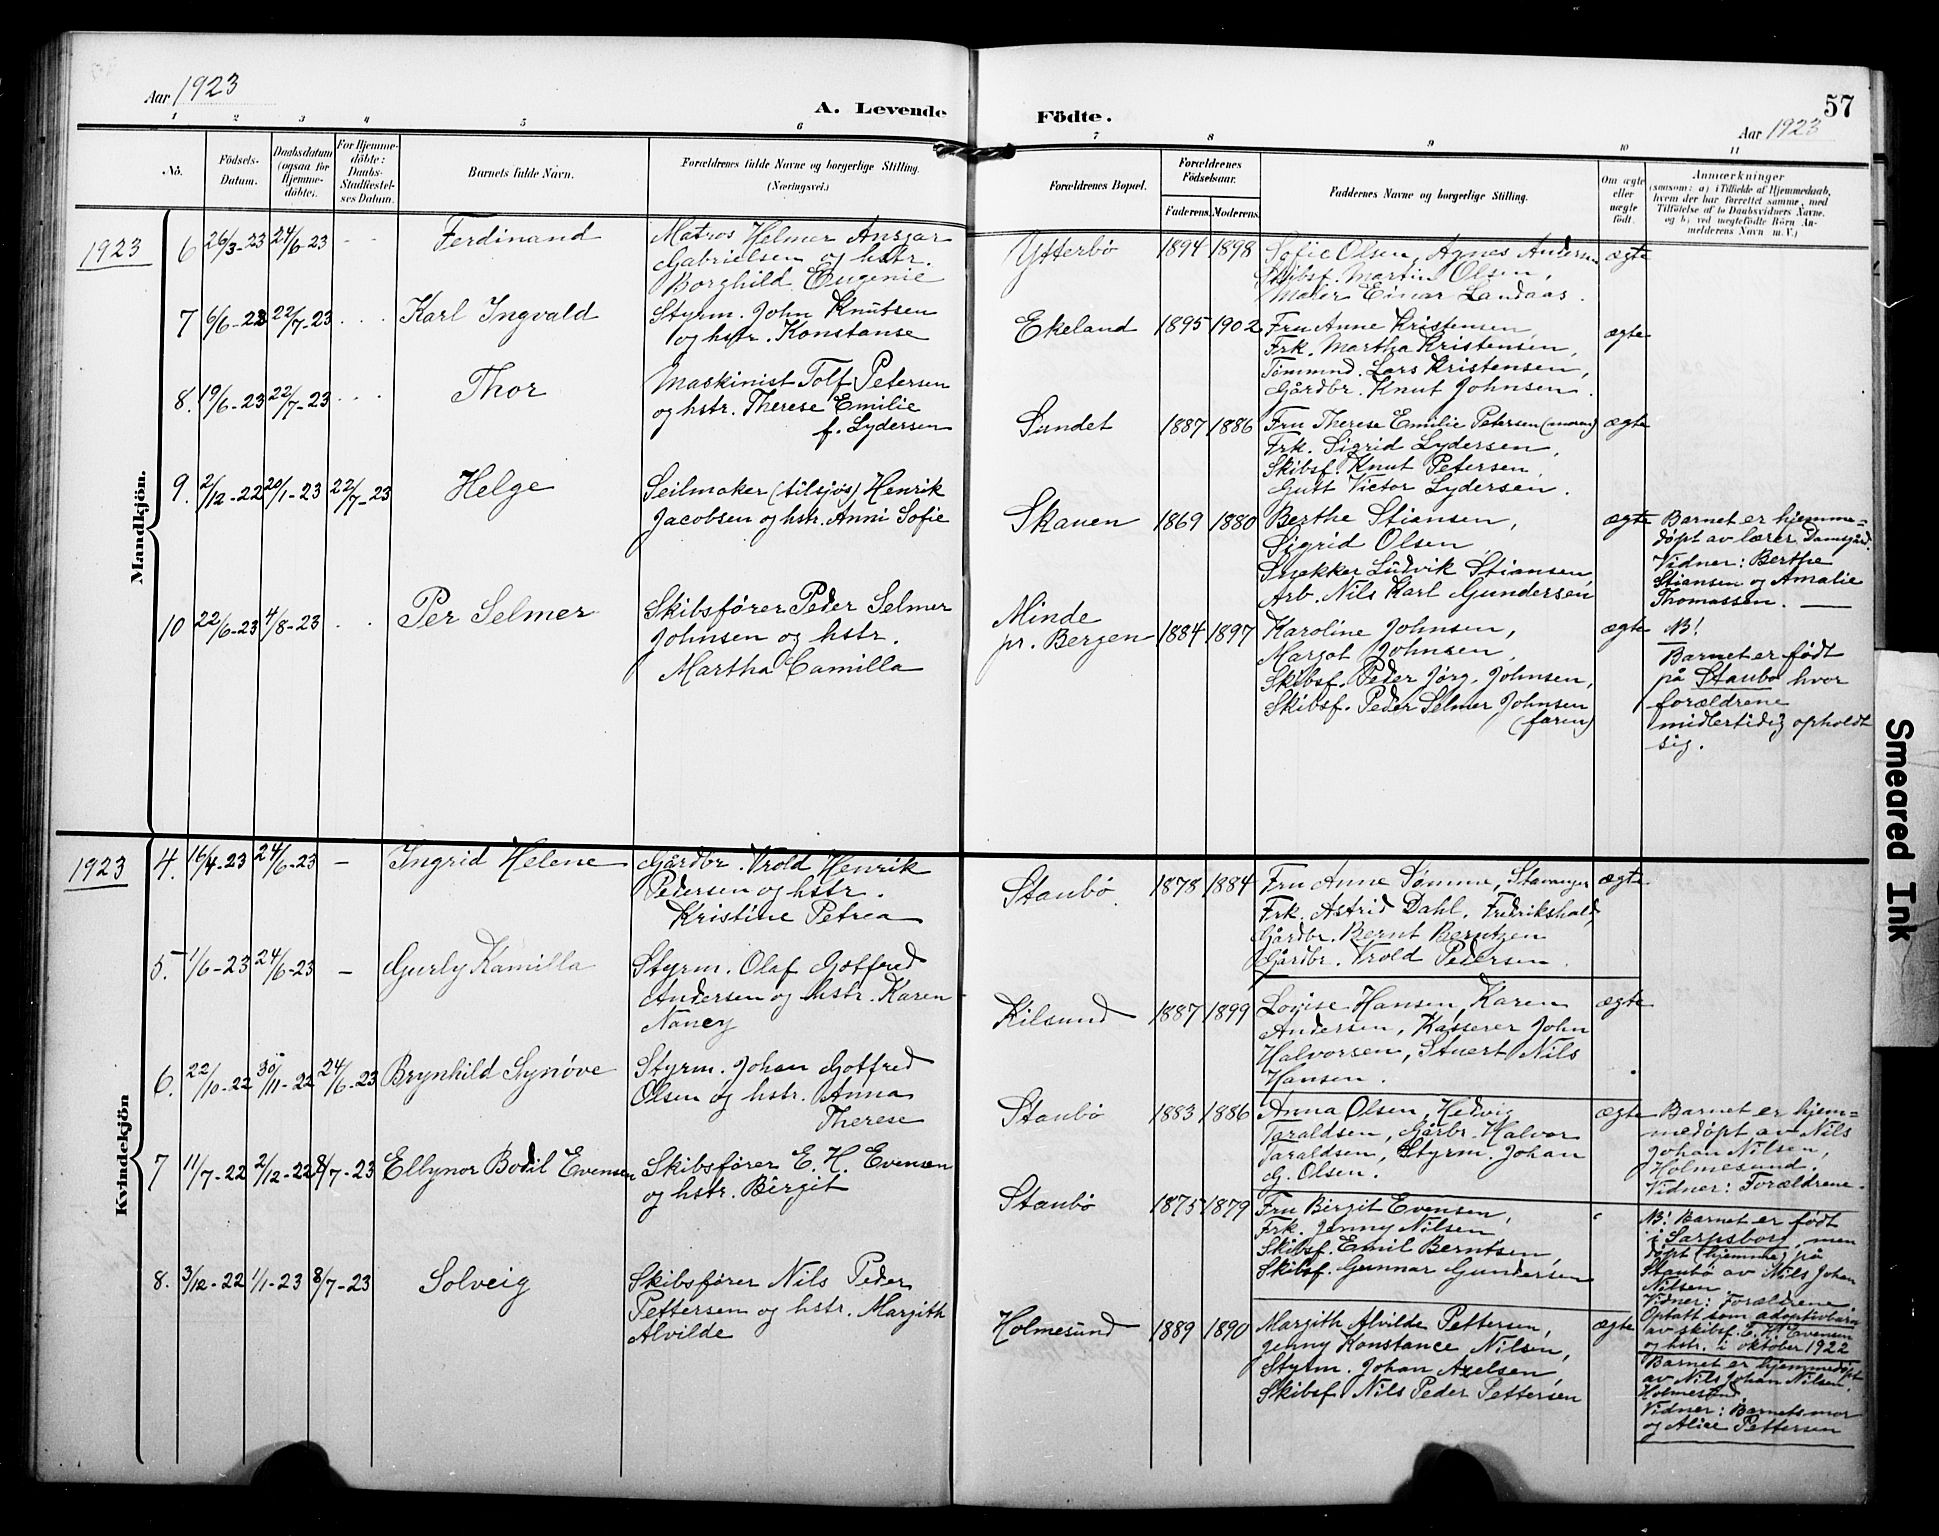 Aar 1923
A. Levende
Födte.
57
Aar 1923
1 2 3 4 5 6 7 8 9 10 11
No.
Födsels-
Datum.
Daabsdatum
(ogsaa for
Hjemme-
döbte).
For Hjemme-
döbte:
Daabs-
Stadfæstel-
ses Datum.
Barnets fulde Navn.
Forældrenes fulde Navne og borgerlige Stilling.
(Næringsvei.)
Forældrenes Bopæl.
Forældrenes
Födselsaar.
Faderens. Moderens.
Faddernes Navne og borgerlige Stilling.
Om ægte
eller
uægte
födt.
Anmærkninger
(saasom: a) i Tilfælde af Hjemmedaab,
hvem der har forrettet samme, med
Tilföielse af to Daabsvidners Navne.
og b) ved uægtefödte Börn An-
melderens Navn m. V.)
Mandkjön.
1923
6 26/3-23 24/6-23 - -
Ferdinand
Matros Helmer Ansgar
Gabrielsen og hstr.
Borghild Eugenie
Ytterbö
1894 1898
Sofie Olsen, Agnes Andersen
Skibsf. Martin Olsen,
Maler Einar Landaas.
ægte
7 6/6-23 22/7-23 . . .
Karl Ingvald
Styrm. John Knutsen
og hstr. Konstanse
Ekeland
1895 1902
Fru Anne Kristensen,
Frk. Martha Kristensen,
Tømmmd. Lars Kristensen,
Gårdbr. Knut Johnsen.
ægte
8. 19/6-23 22/7-23 . . .
Thor
Maskinist Tolf Petersen
og hstr. Therese Emilie
f. Lydersen
Sundet
1887 1886
Fru Therese Emilie Petersen (moren)
Frk. Sigrid Lydersen,
Skibsf. Knut Petersen,
Gutt Victor Lydersen.
ægte
9. 2/12-22 20/1-23 22/7-23
Helge
Seilmaker (tilsjøs) Henrik
Jacobsen og hstr. Anni Sofie
Skaven
1869 1880
Berthe Stiansen,
Sigrid Olsen
Snekker Ludvik Stiansen,
Arb. Nils Karl Gundersen
ægte
Barnet er hjemme-
døpt av lærer Damsgård.
Vidner: Berthe
Stiansen og Amalie
Thomassen. —
10 22/6-23 4/8-23 . .
Per Selmer
Skibsfører Peder Selmer
Johnsen og hstr.
Martha Camilla
Minde
pr. Bergen
1884 1897
Karoline Johnsen,
Margot Johnsen,
Skibsf. Peder Jørg. Johnsen,
Skibsf. Peder Selmer Johnsen
(faren)
ægte
NB!
Barnet er født
på Staubø hvor
forældrene
midlertidig opholdt
sig.
Kvindekjön
1923
4. 16/4-23 24/6-23 -
Ingrid Helene
Gårdbr. Vrold Henrik
Pedersen og hstr.
Kristine Petrea
Staubö.
1878 1884
Fru Anne Tømme, Stavanger
Frk. Astrid Dahl, Fredrikshald,
Gårdbr. Bernt Berntzen
Gårdbr. Vrold Pedersen.
ægte
5. 1/6-23 24/6-23 -
Gurly Kamilla
Styrm. Olaf Gotfred
Andersen og hstr. Karen
Nancy
Kilsund
1887 1899
Lovise Hansen, Karen
Andersen, Kasserer John
Halvorsen, Stuert Nils
Hansen.
ægte
6. 22/10-22 30/11-22 24/6-23
Brynhild Synøve
Styrm. Johan Gotfred
Olsen og hstr. Anna
Therese
Staubö
1883 1886
Anna Olsen, Hedvig
Taraldsen, Gårbr. Halvor
Taraldsen, Styrm. Johan
G. Olsen.
ægte
Barnet er hjem-
medøpt av Nils
Johan Nilsen,
Holmesund.
Vidner: Forældrene.
7 11/7-22 2/12-22 8/7-23
Ellynor Bodil Evensen
Skibsfører E. H. Evensen
og hstr. Birgit
Staubö
1875 1879
Fru Birgit Evensen,
Frk. Jenny Nilsen
Skibsf. Emil Berntsen,
Skibsf. Gunnar Gundersen
NB! Barnet er født
i Sarpsborg, men
døpt (hjemme) på
Staubø av Nils Johan
Nilsen.
Vidner: Forældrene.
Optatt som adoptivbarn
av skibsf. E. H. Evensen
og hstr. i oktober 1922
8. 3/12-22 1/1-23 8/7-23
Solveig
Skibsfører Nils Peder
Pettersen og hstr. Margith
Alvilde
Holmesund
1889 1890
Margith Alvilde Pettersen,
Jenny Konstance Nilsen,
Styrm. Johan Axelsen,
Skibsf. Nils Peder Pettersen
ægte
Barnet er hjemmedøpt
av Nils Johan Nilsen,
Holmesund.
Vidner: Barnets mor
og Alice Pettersen
Smeared Ink